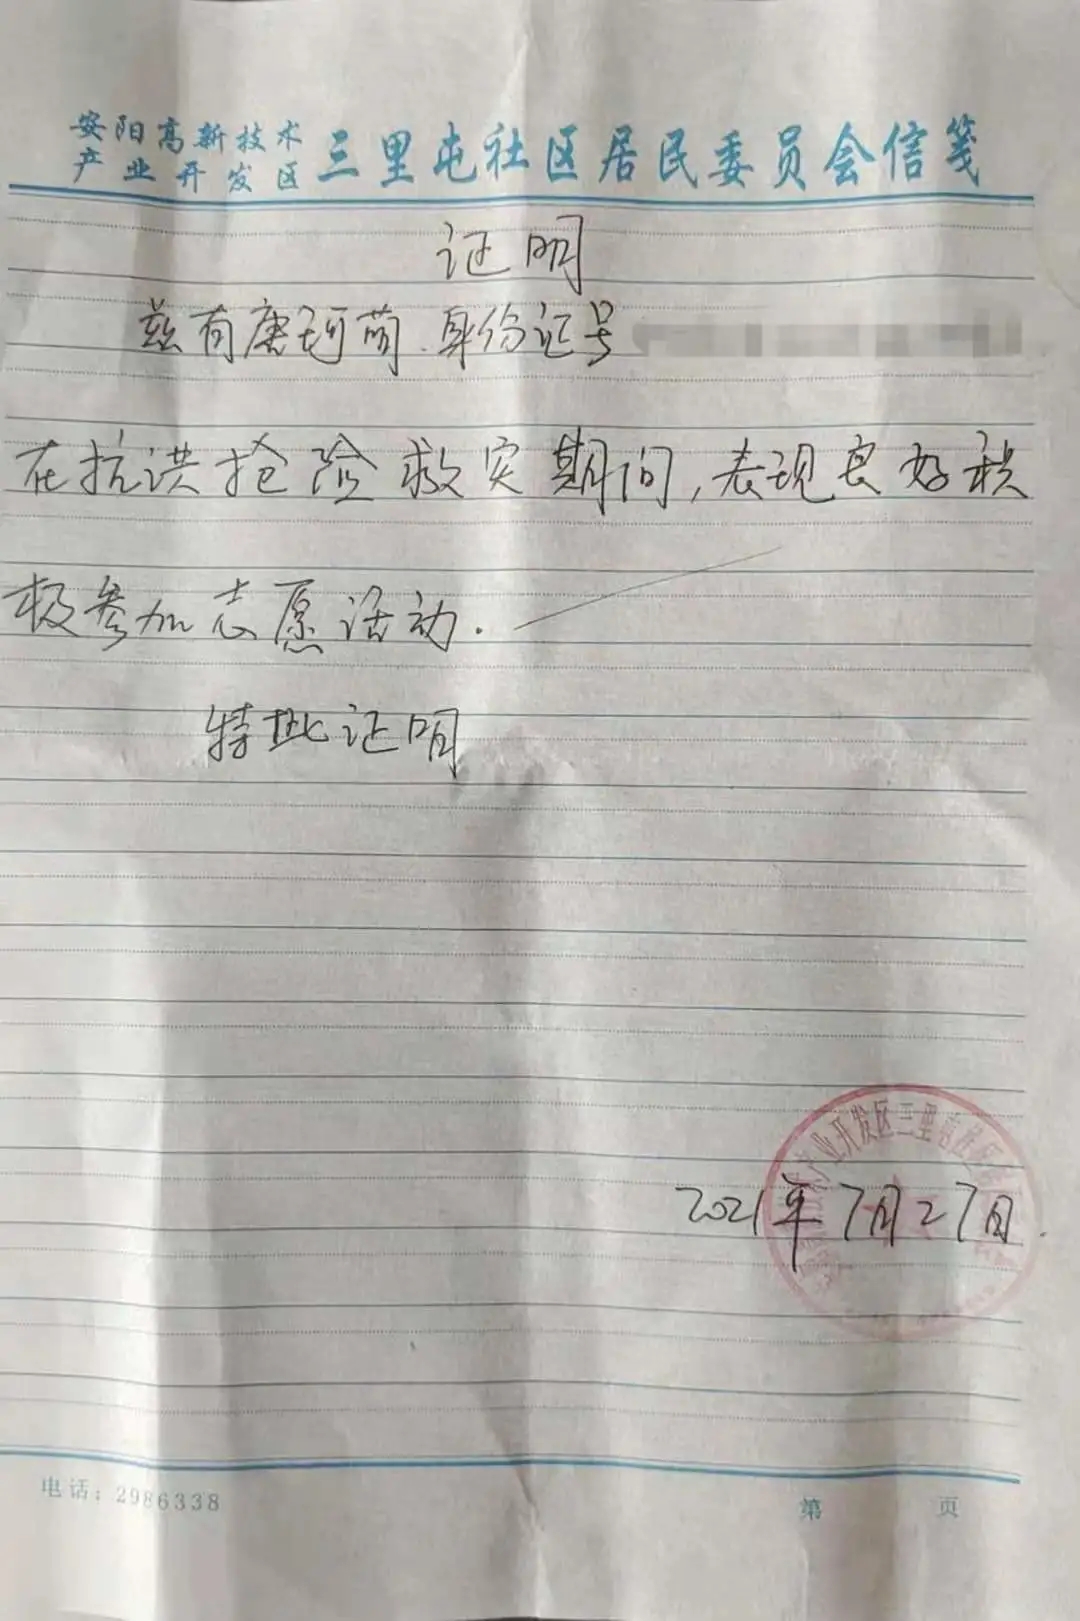 安阳高新技术
产业开发区 三里屯社区居民委员会信笺
证明
兹有唐珂萌.身份证号
在抗洪抢险救灾期间,表现良好积
极参加志愿活动.
特此证明
产业开发区三里屯社区
2021年7月27日.
电话:2986338
第 页